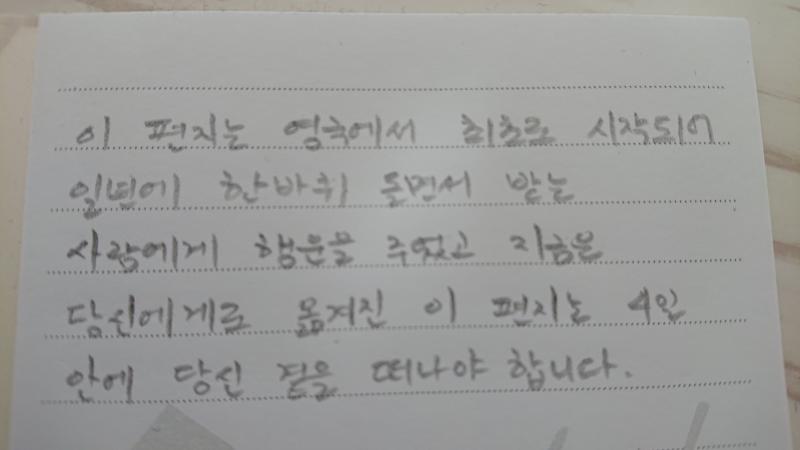 이 편지는 영국에서 최초로 시작되어
일년에 한바퀴 돌면서 받는
사람에게 행운을 주었고 지금은
당신에게로 옮겨진 이 편지는 4일
안에 당신 곁을 떠나야 합니다.